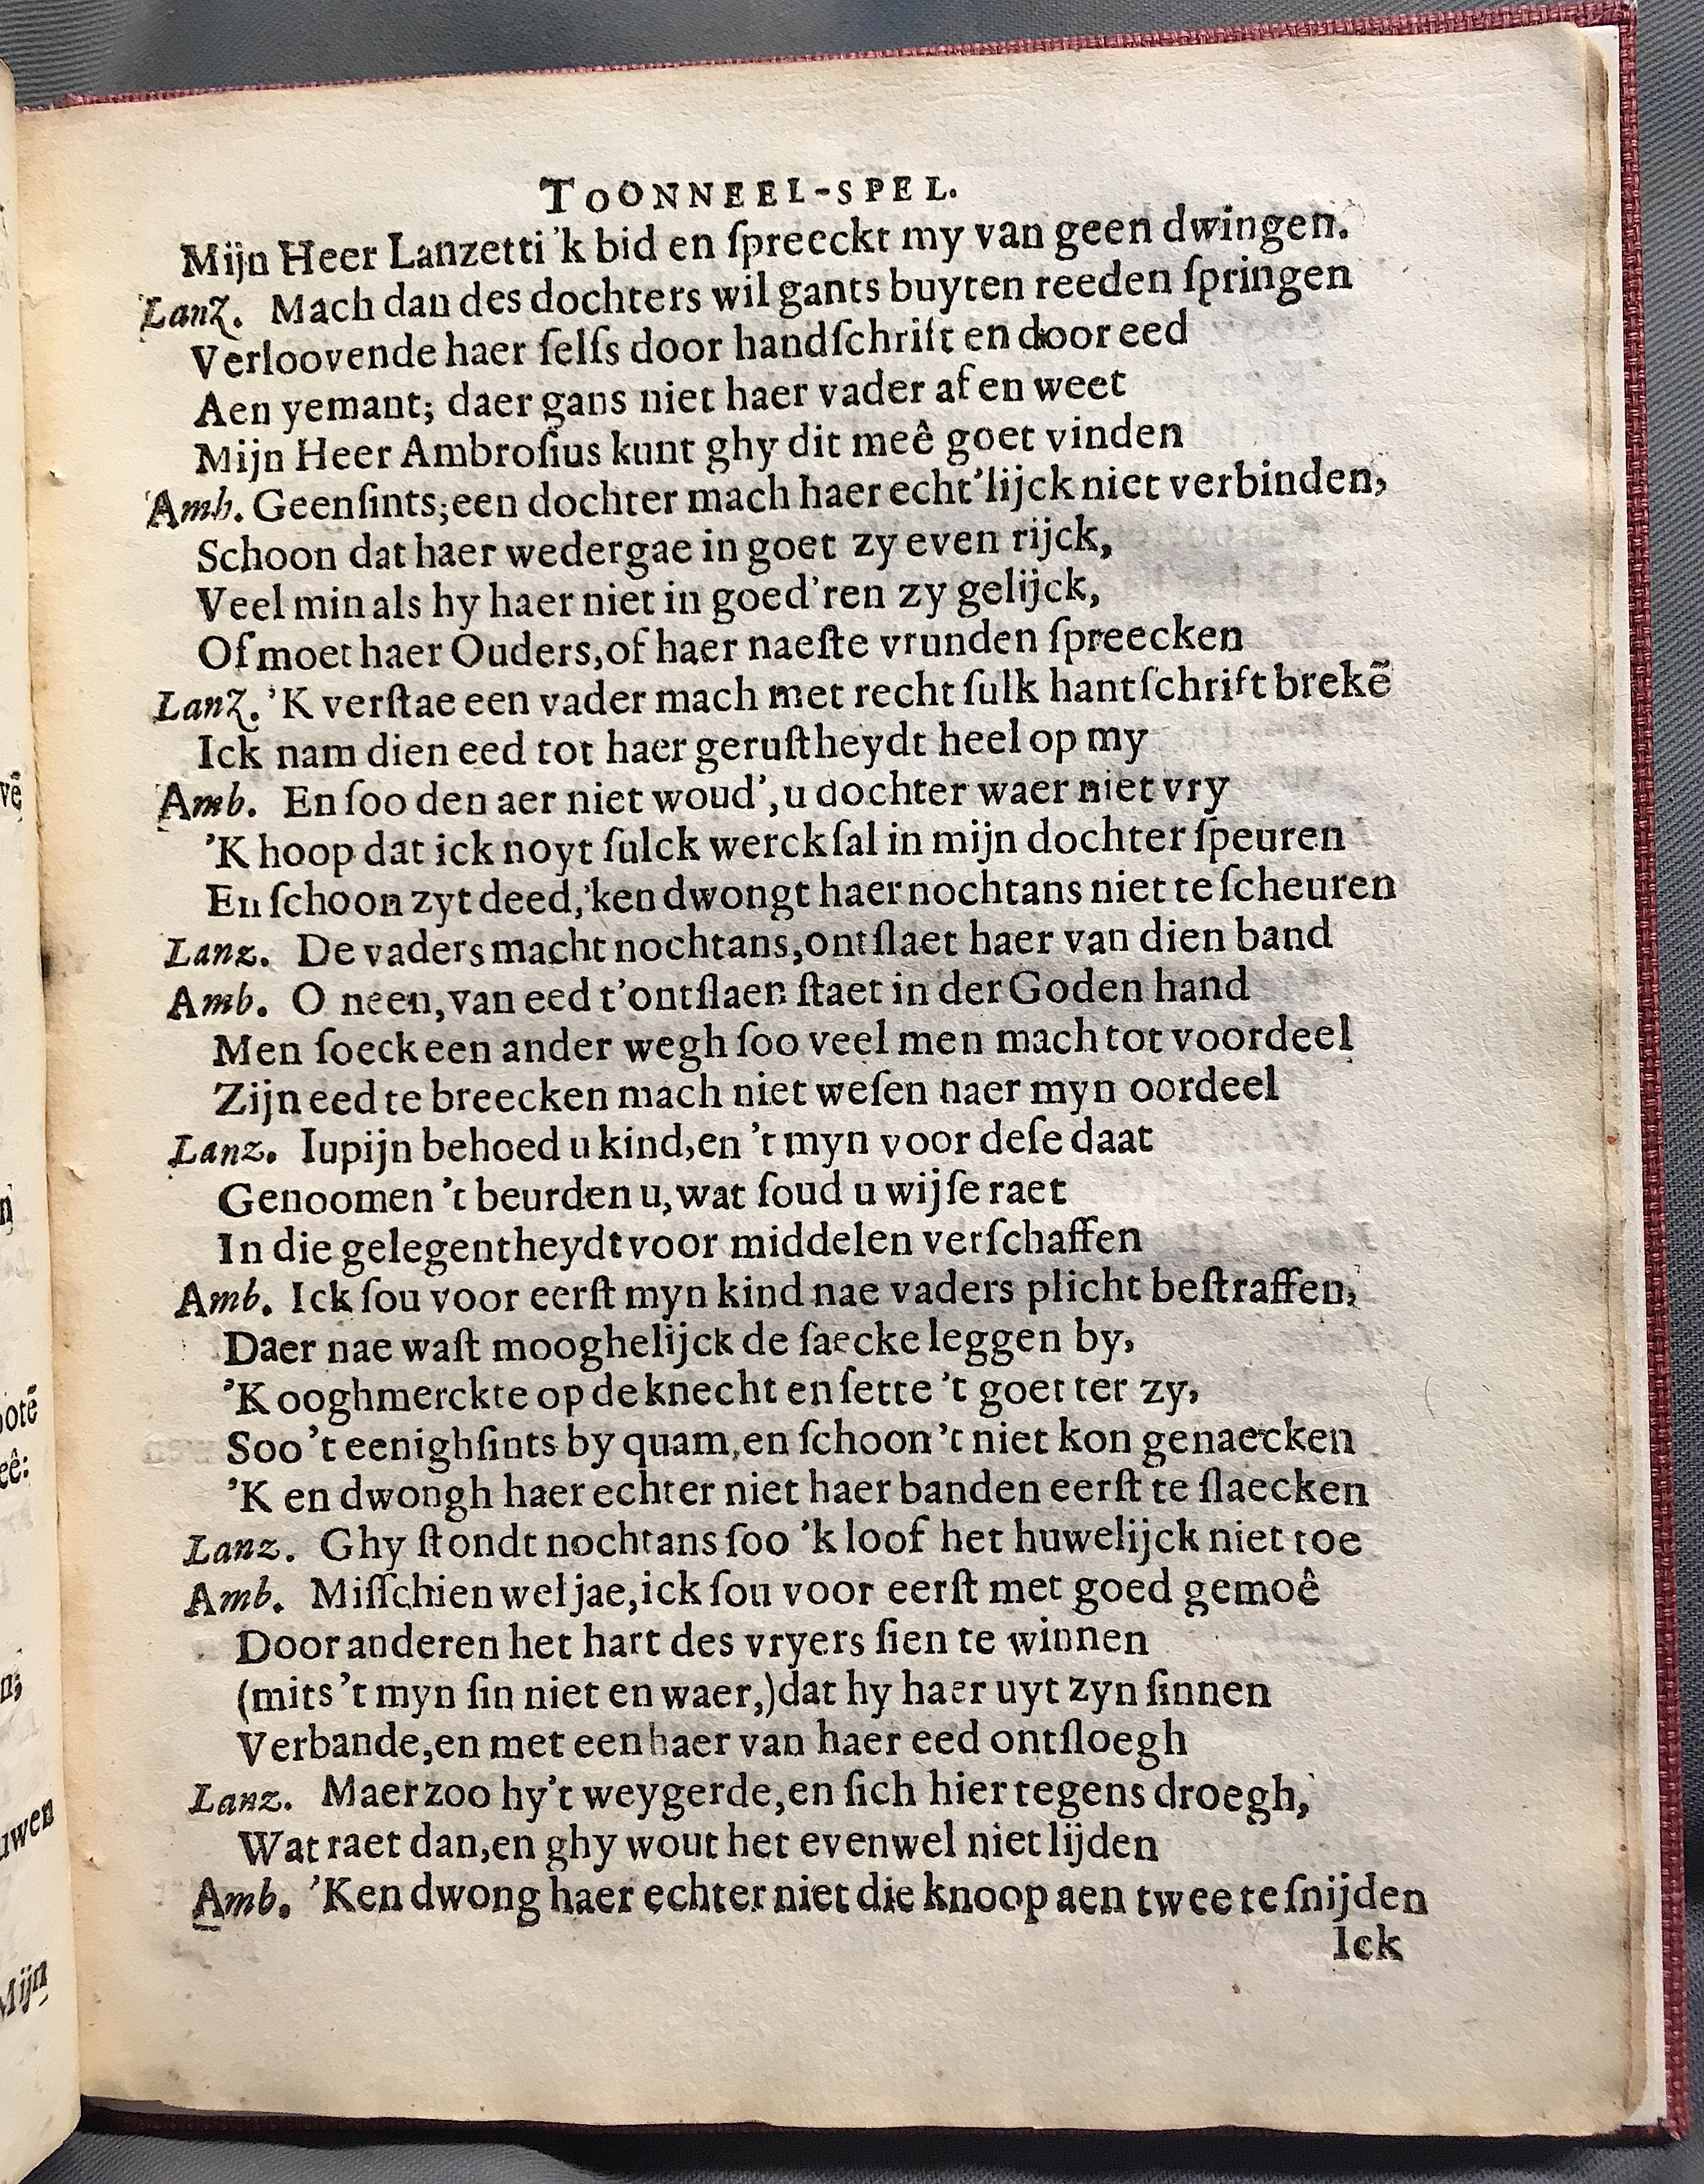 TOONNEEL-SPEL.
Mijn Heer Lanzetti 'k bid en ſpreeckt my van geen dwingen.
Lanz. Mach dan des dochters wil gants buyten reeden ſpringen
Verloovende haer ſelfs door handſchrift en door eed
Aen yemant; daer gans niet haer vader af en weet
Mijn Heer Ambroſius kunt ghy dit meê goet vinden
Amb. Geenſints; een dochter mach haer echt'lijck niet verbinden,
Schoon dat haer wedergae in goet zy even rijck,
Veel min als hy haer niet in goed'ren zy gelijck,
Of moet haer Ouders, of haer naeſte vrunden ſpreecken
Lanz. 'K verſtae een vader mach met recht ſulk hantſchrift brekẽ
Ick nam dien eed tot haer geruſtheydt heel op my
Amb. En ſoo den aer niet woud', u dochter waer niet vry
'K hoop dat ick noyt ſulck werck ſal in mijn dochter ſpeuren
En ſchoon zyt deed, 'ken dwongt haer nochtans niet te ſcheuren
Lanz. De vaders macht nochtans, ontſlaet haer van dien band
Amb. O neen, van eed t'ontſlaen ſtaet in der Goden hand
Men ſoeck een ander wegh ſoo veel men mach tot voordeel
Zijn eed te breecken mach niet weſen naer myn oordeel
Lanz. Iupijn behoed u kind, en 't myn voor deſe daat
Genoomen 't beurden u, wat ſoud u wijſe raet
In die gelegentheydt voor middelen verſchaffen
Amb. Ick ſou voor eerſt myn kind nae vaders plicht beſtraffen,
Daer nae waſt mooghelijck de ſaecke leggen by,
'K ooghmerckte op de knecht en ſette 't goet ter zy,
Soo 't eenighſints by quam, en ſchoon 't niet kon genaecken
'K en dwongh haer echter niet haer banden eerſt te ſlaecken
Lanz. Ghy ſtondt nochtans ſoo 'k loof het huwelijck niet toe
Amb. Miſſchien wel jae, ick ſou voor eerſt met goed gemoê
Door anderen het hart des vryers ſien te winnen
(mits 't myn ſin niet en waer,) dat hy haer uyt zyn ſinnen
Verbande, en met een haer van haer eed ontſloegh
Lanz. Maer zoo hy't weygerde, en ſich hier tegens droegh,
Wat raet dan, en ghy wout het evenwel niet lijden
Amb. 'Ken dwong haer echter niet die knoop aen twee te ſnijden
Ick
vẽ
otẽ
eê:
uwen
Mijn